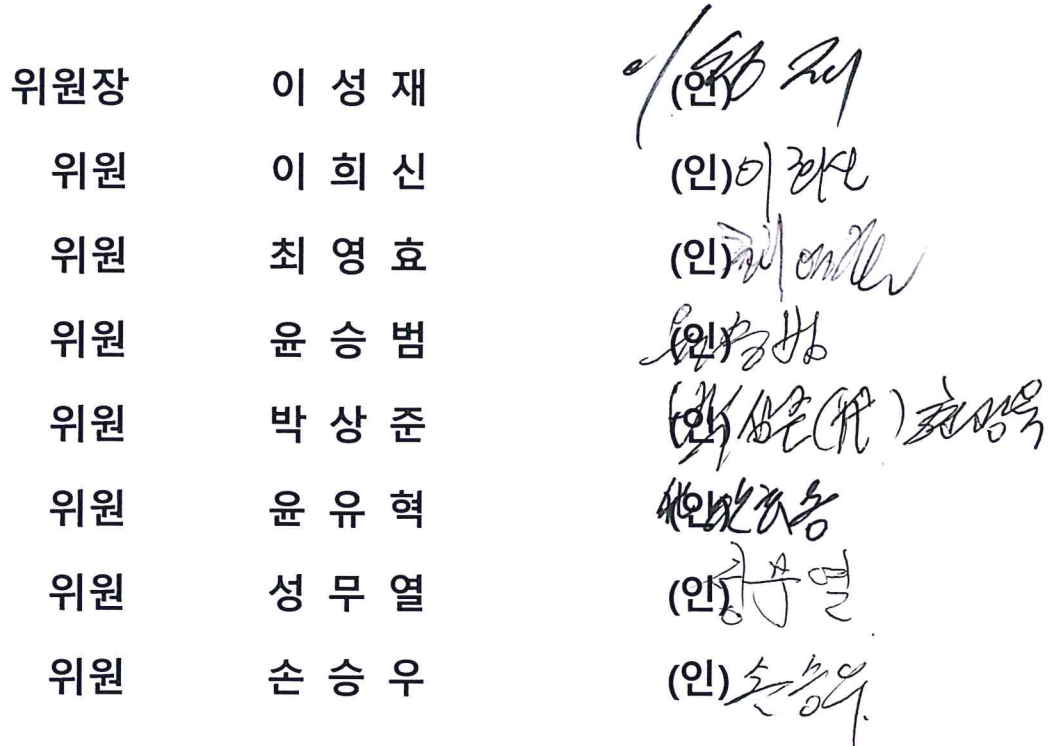 위원장 이 성 재 (인) 이성재
위원 이 희 신 (인) 이희신
위원 최 영 효 (인)
위원 윤 승 범 (인) 윤승범
위원 박 상 준 (인) 박상준(代)
위원 윤 유 혁 (인)
위원 성 무 열 (인) 성무열
위원 손 승 우 (인) 손승우